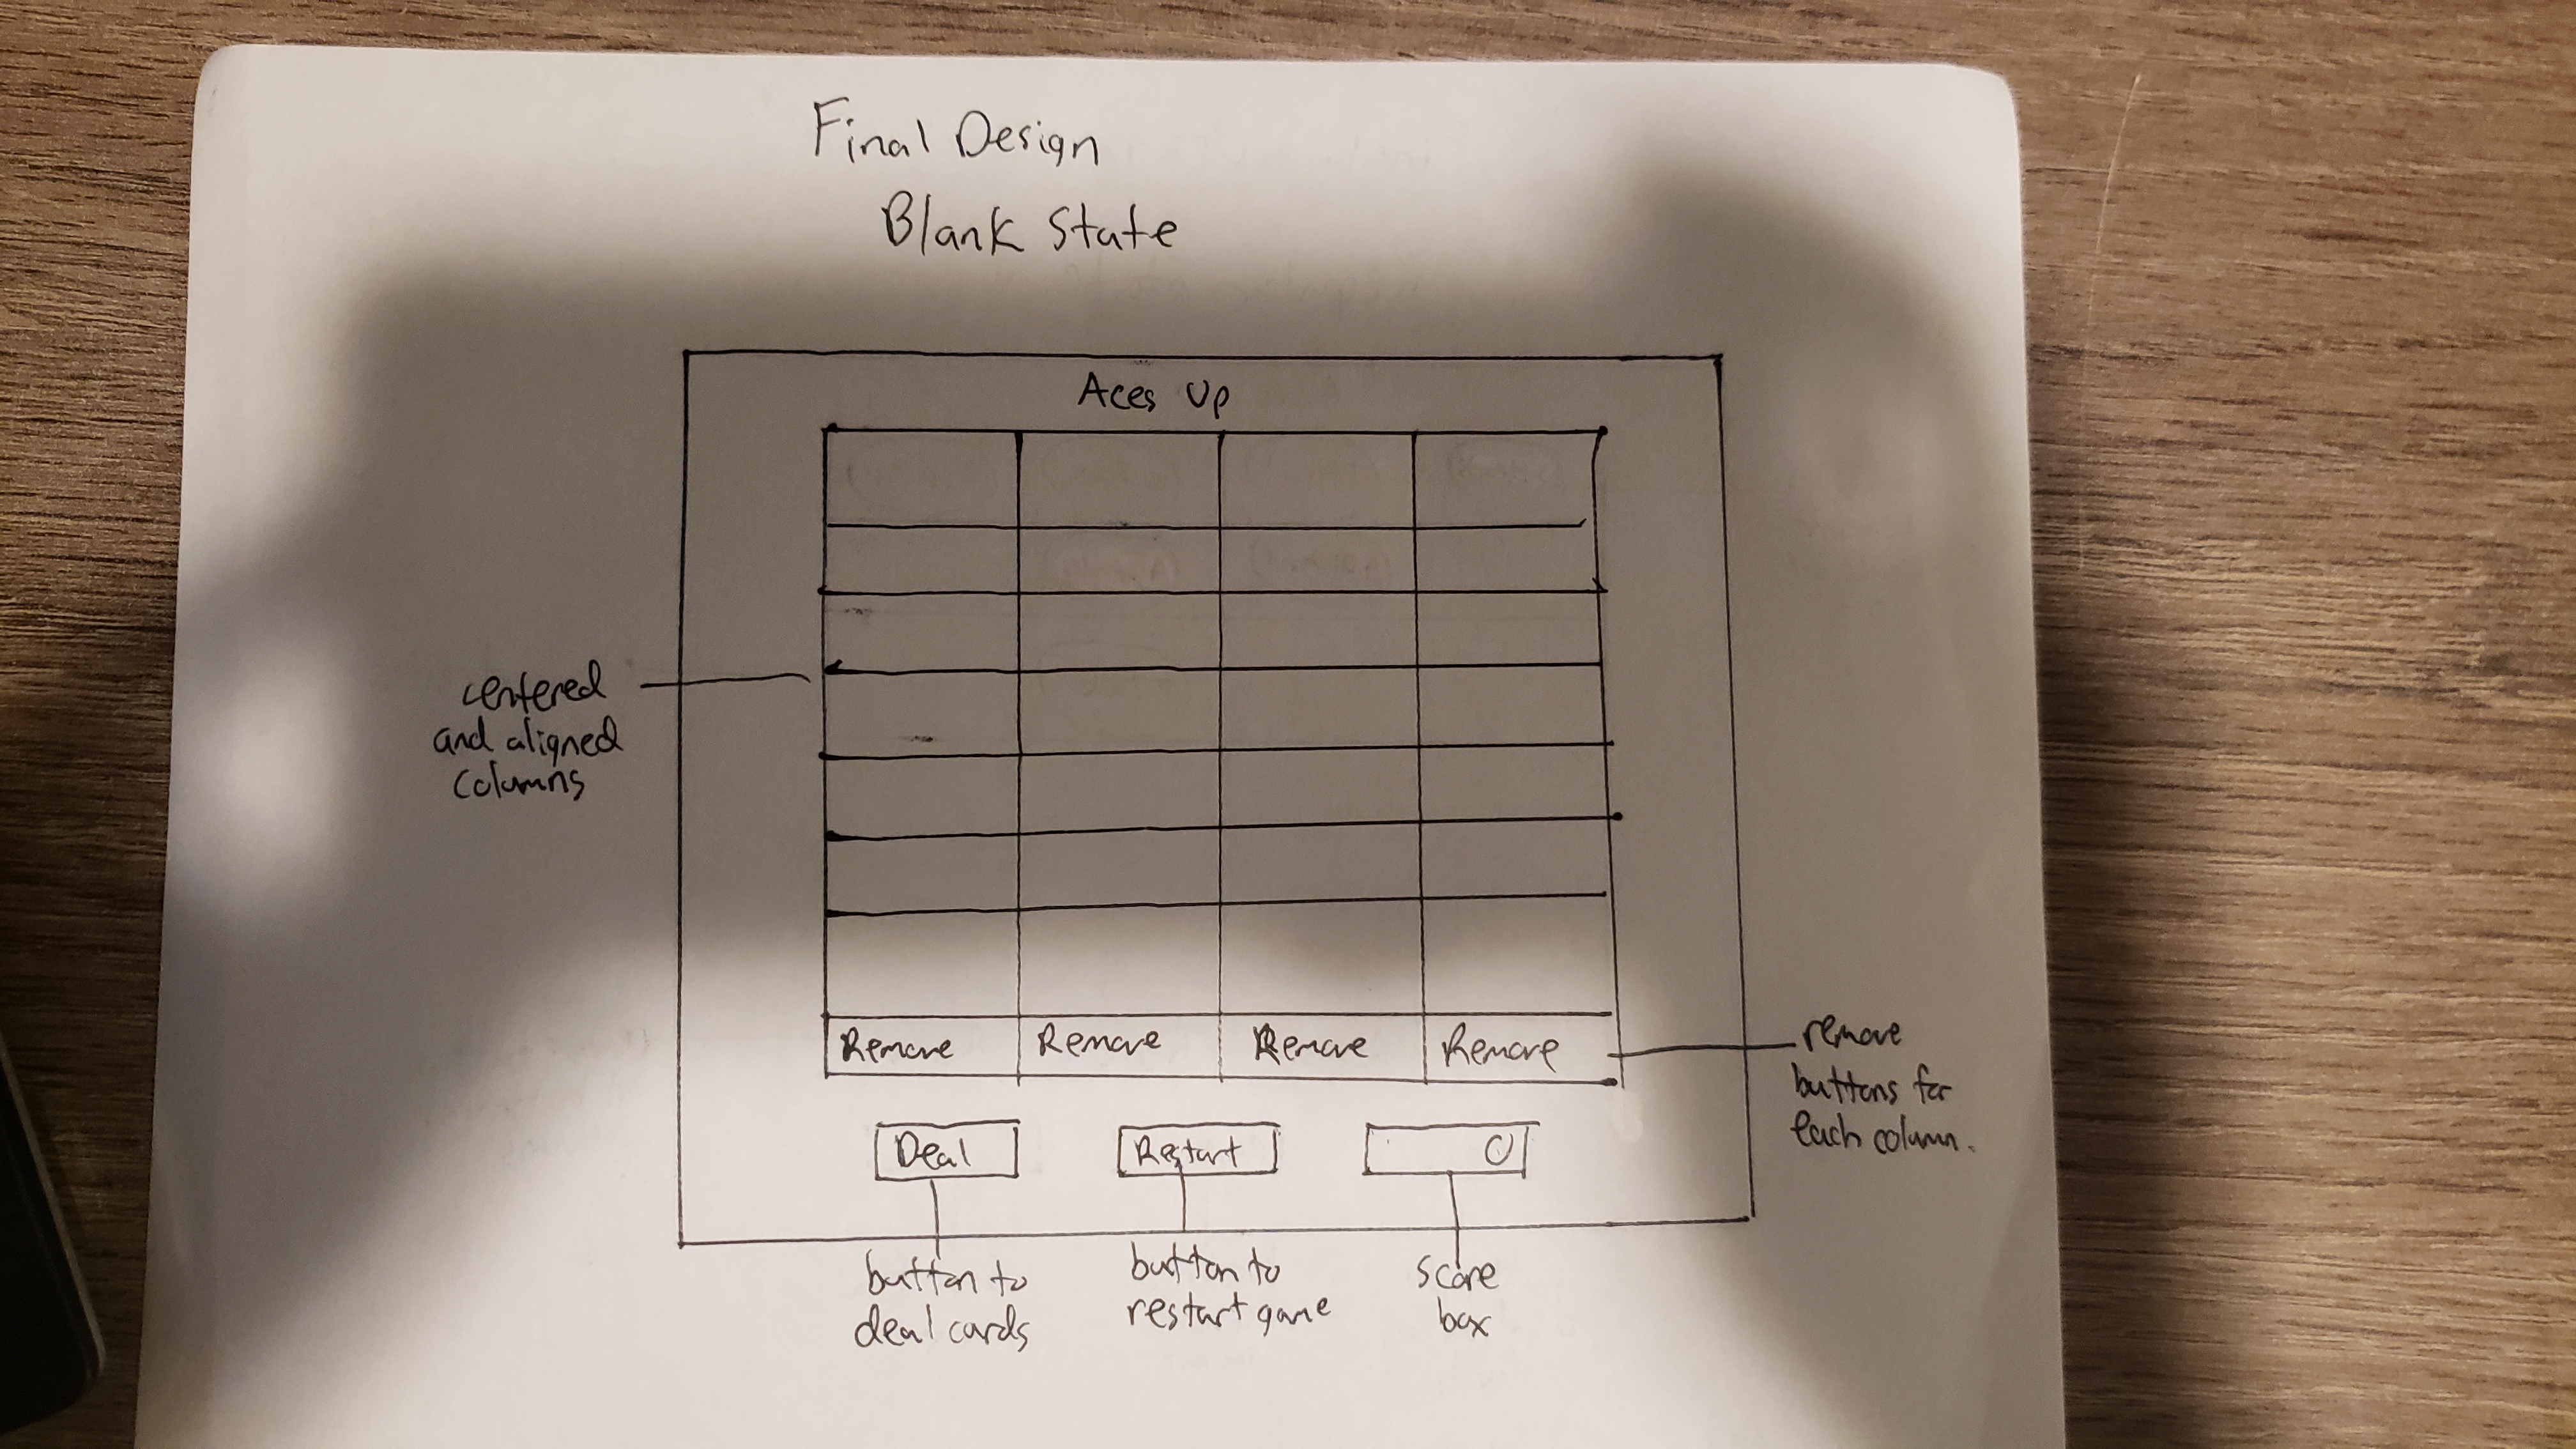 Final Design
Blank State
Aces Up
centered
and aligned
columns
Remove Remove Remove Remove
remove
buttons for
each column.
Deal Restart 0
button to
deal cards
button to
restart game
score
box